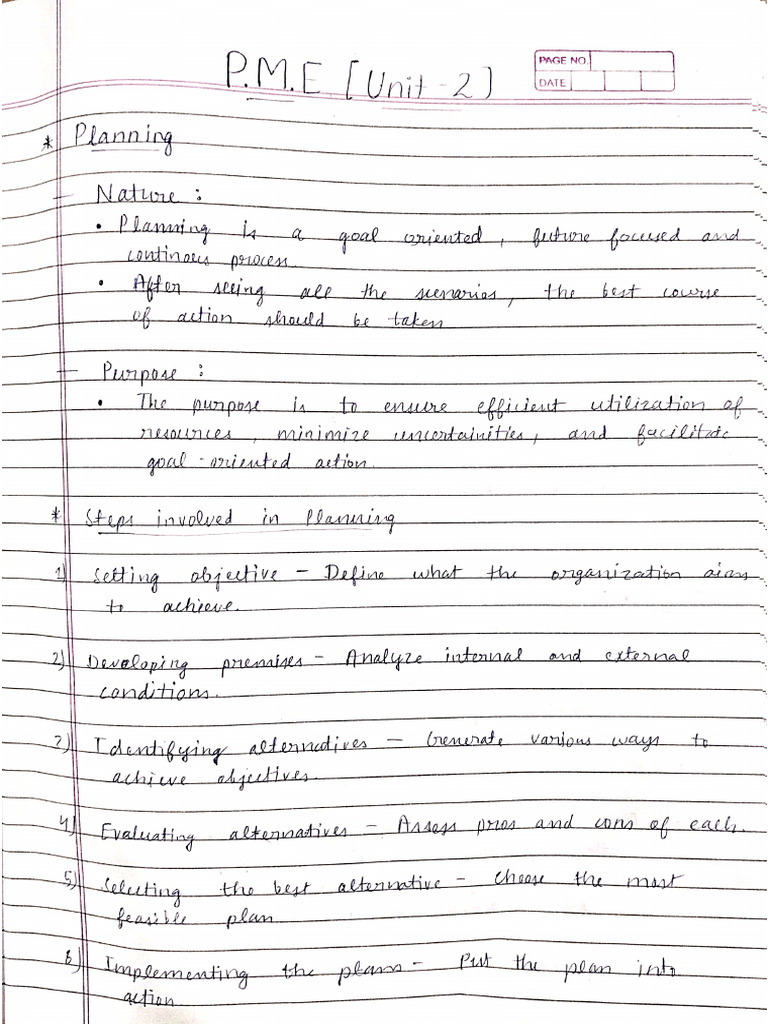 P.M.E [Unit-2]
PAGE NO.
DATE
* Planning
— Nature :
• Planning is a goal oriented, future focused and
continous process
• After seeing all the scenarios, the best course
of action should be taken
— Purpose :
• The purpose is to ensure efficient utilization of
resources, minimize uncertainities, and facilitate
goal-oriented action.
* Steps involved in planning
1) Setting objective – Define what the organization aims
to achieve.
2) Developing premises – Analyze internal and external
conditions.
3) Identifying alternatives – Generate various ways to
achieve objectives.
4) Evaluating alternatives – Assess pros and cons of each.
5) Selecting the best alternative – Choose the most
feasible plan
6) Implementing the plans – Put the plan into
action